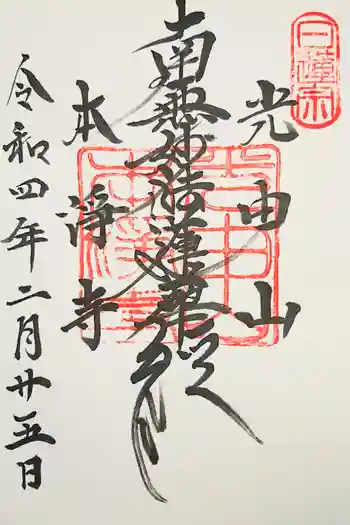 日蓮宗
光由山
南無妙法蓮華経
本浄寺
令和四年二月廿五日